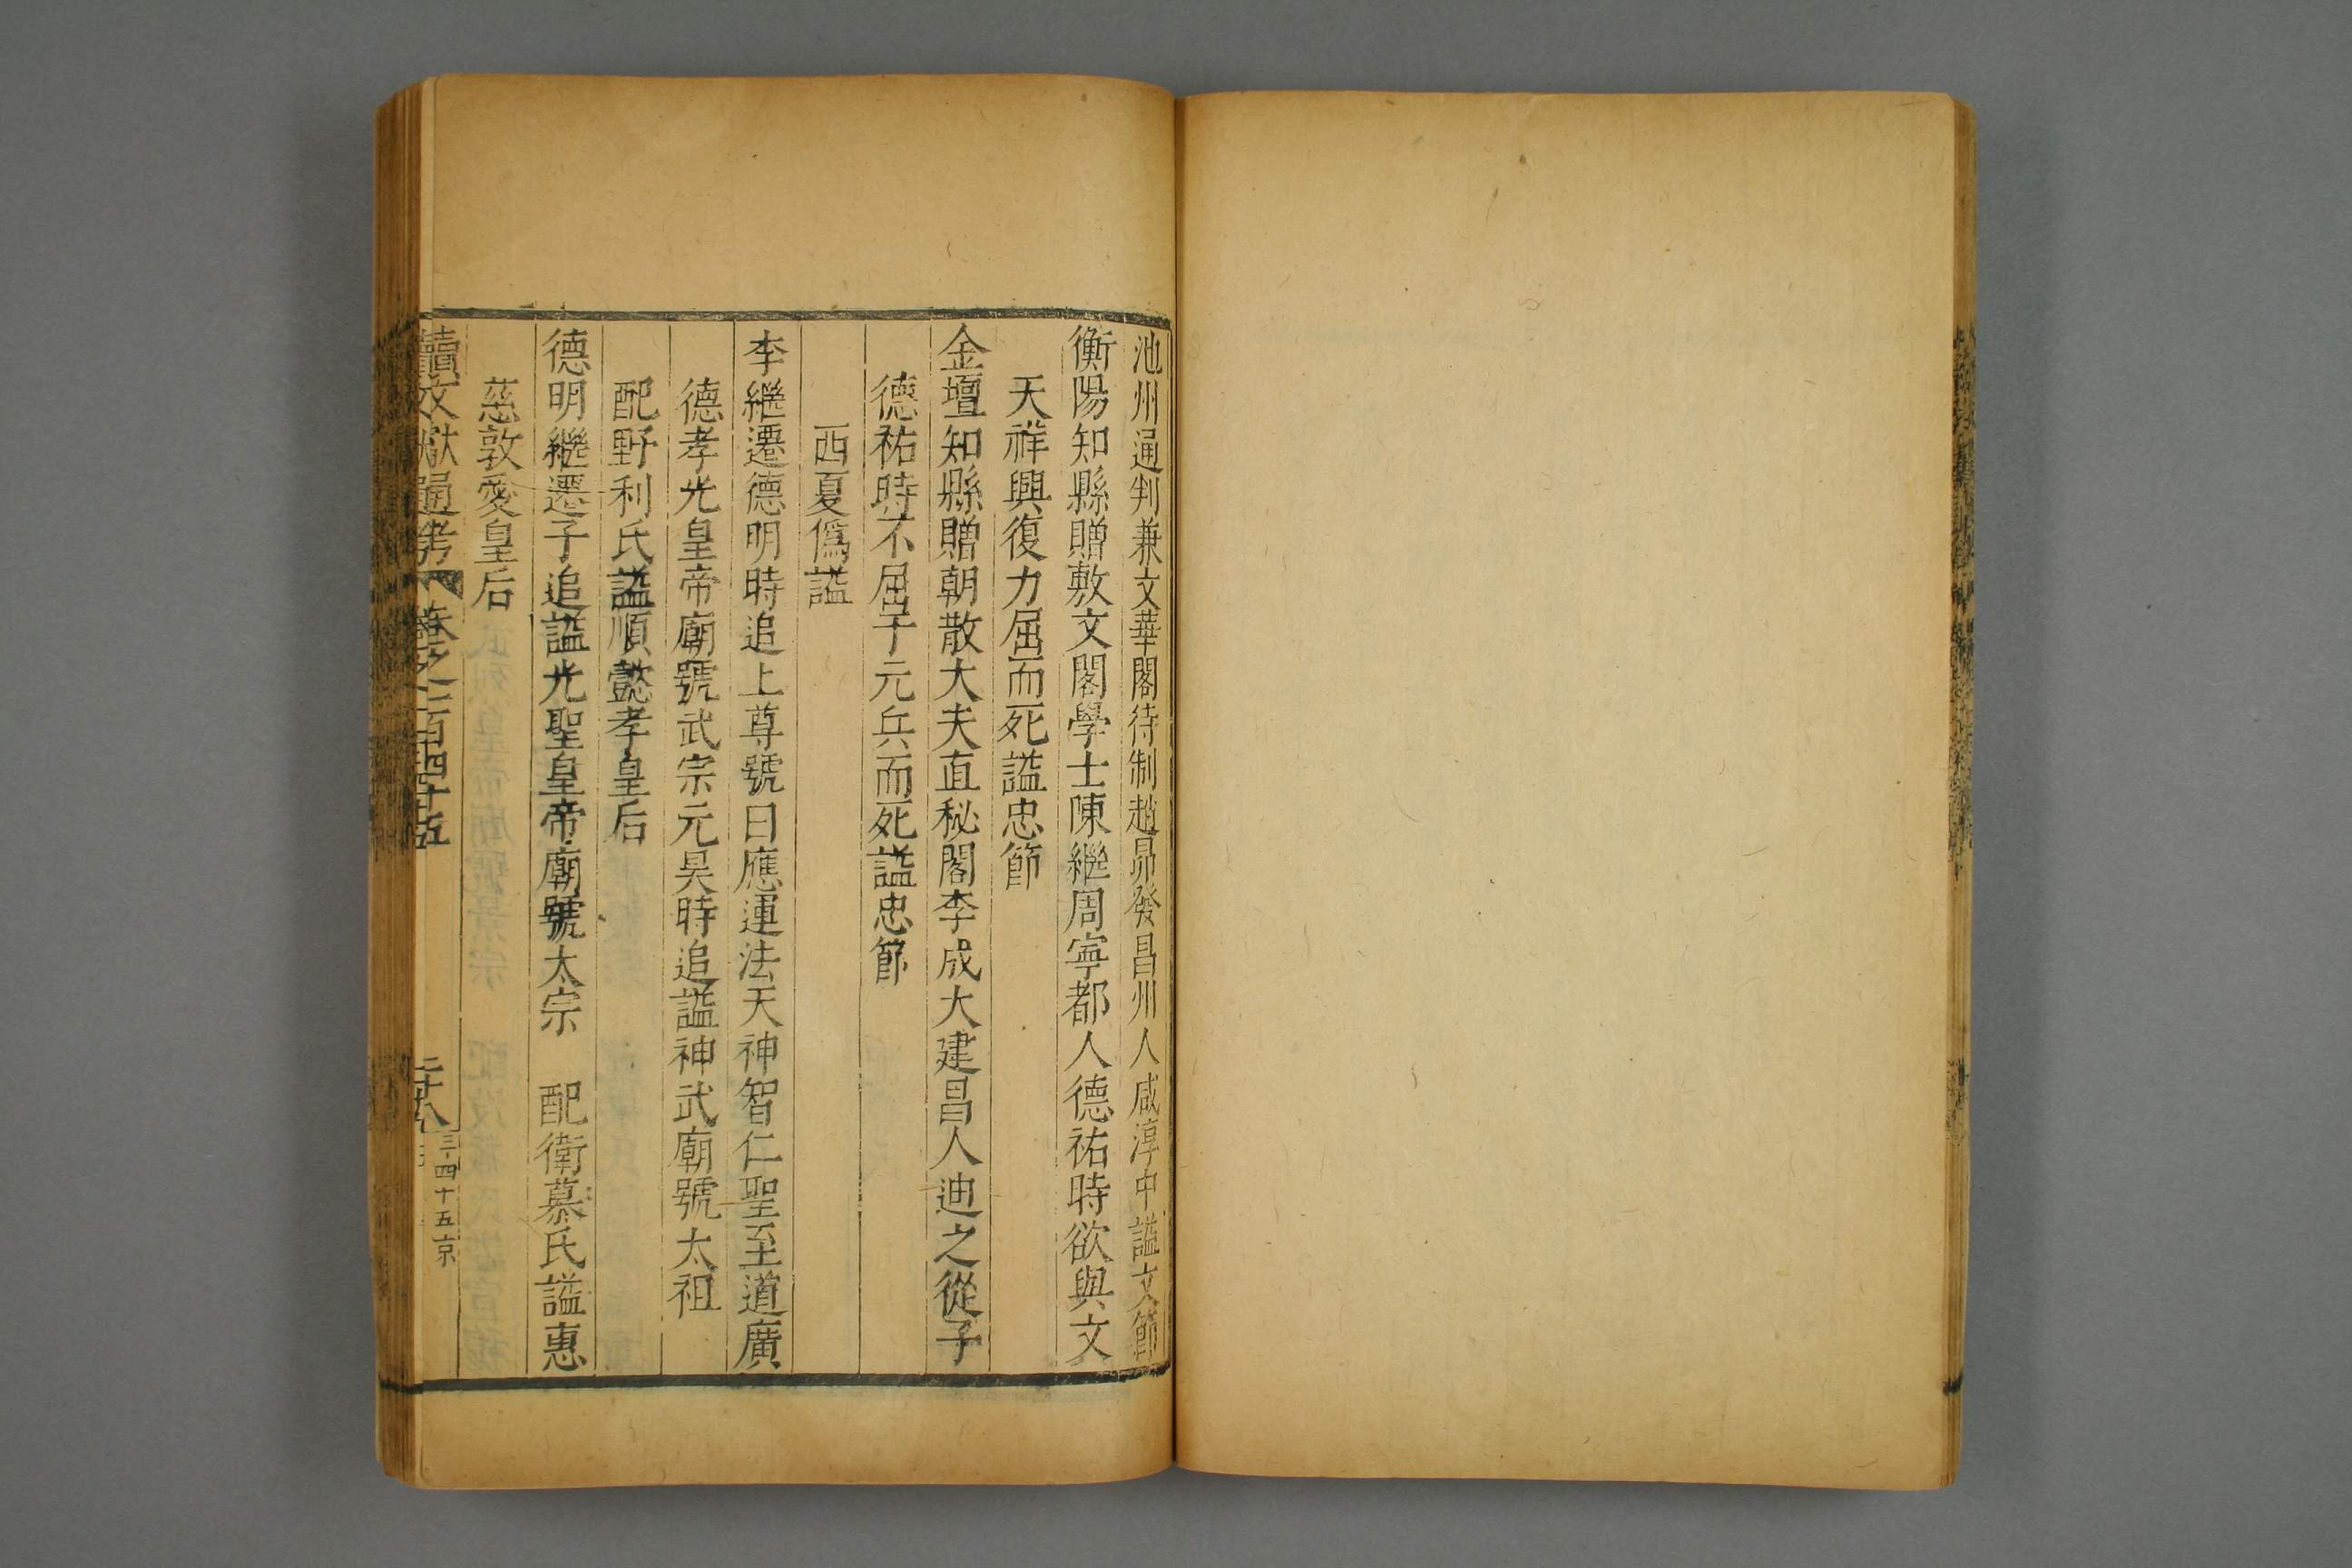 池州通判兼文華閣待制趙昴發昌州人咸淳中謚文節
衡陽知縣贈敷文閣學士陳繼周寧都人德祐時欲與文
天祥興復力屈而死謚忠節
金壇知縣贈朝散大夫直秘閣李成大建昌人迪之從子
德祐時不屈于元兵而死謚忠節
西夏僞謚
李繼遷德明時追上尊號曰應運法天神智仁聖至道廣
德孝光皇帝廟號武宗元昊時追謚神武廟號太祖
配野利氏謚順懿孝皇后
德明繼遷子追謚光聖皇帝廟號太宗 配衛慕氏謚惠
慈敦愛皇后
續文獻通考 卷之一百四十五 二十八
三四十五京